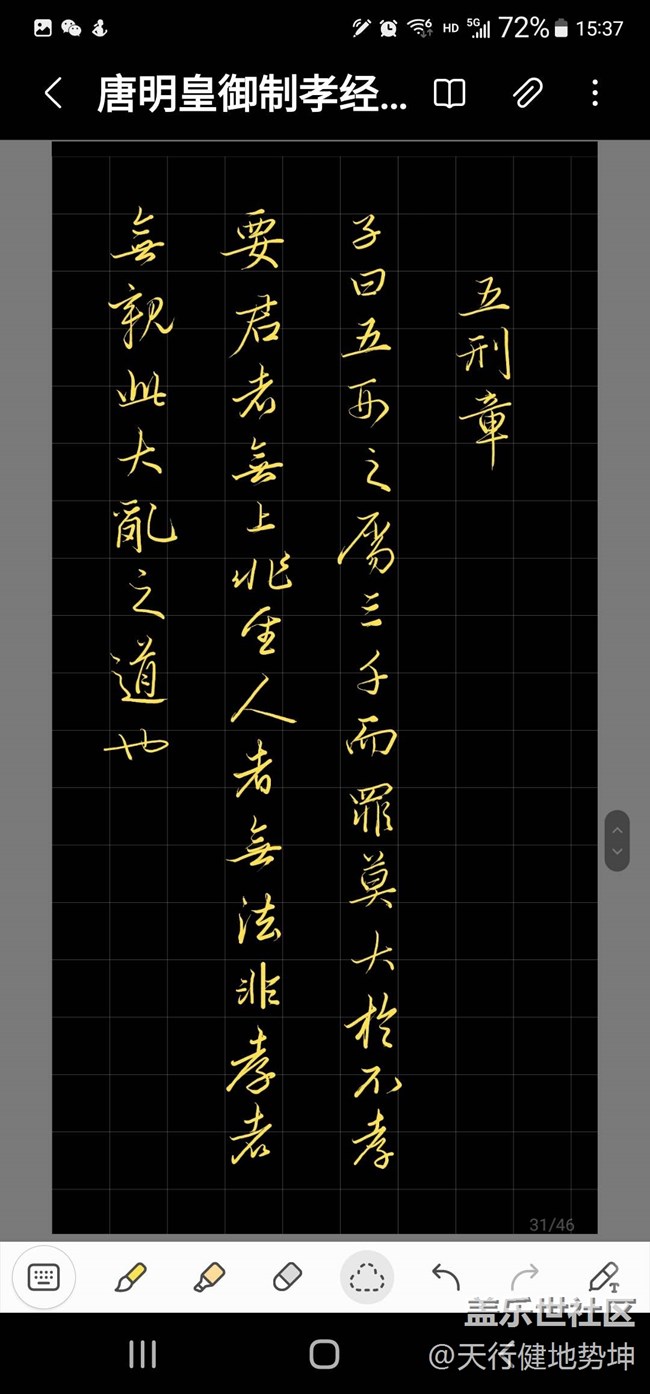 72% 15:37
唐明皇御制孝经...
五刑章
子曰五刑之屬三千而罪莫大於不孝
要君者無上非聖人者無法非孝者
無親此大亂之道也
31/46
盖乐世社区
@天行健地势坤